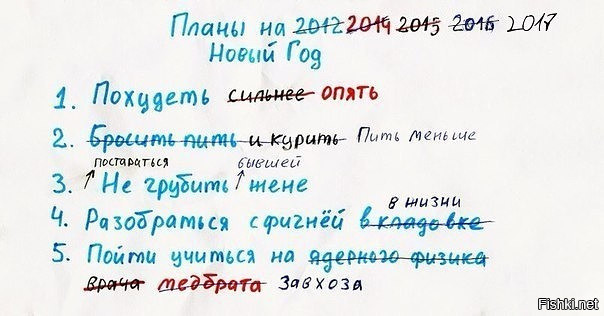 Планы на 2012 2014 2015 2016 2017
Новый Год
1. Похудеть сильнее опять
2. Бросить пить и курить Пить меньше
постараться бывшей
3. Не грубить жене
в жизни
4. Разобраться с фигнёй в кладовке
5. Пойти учиться на ядерного физика
врача медбрата завхоза
Fishki.net